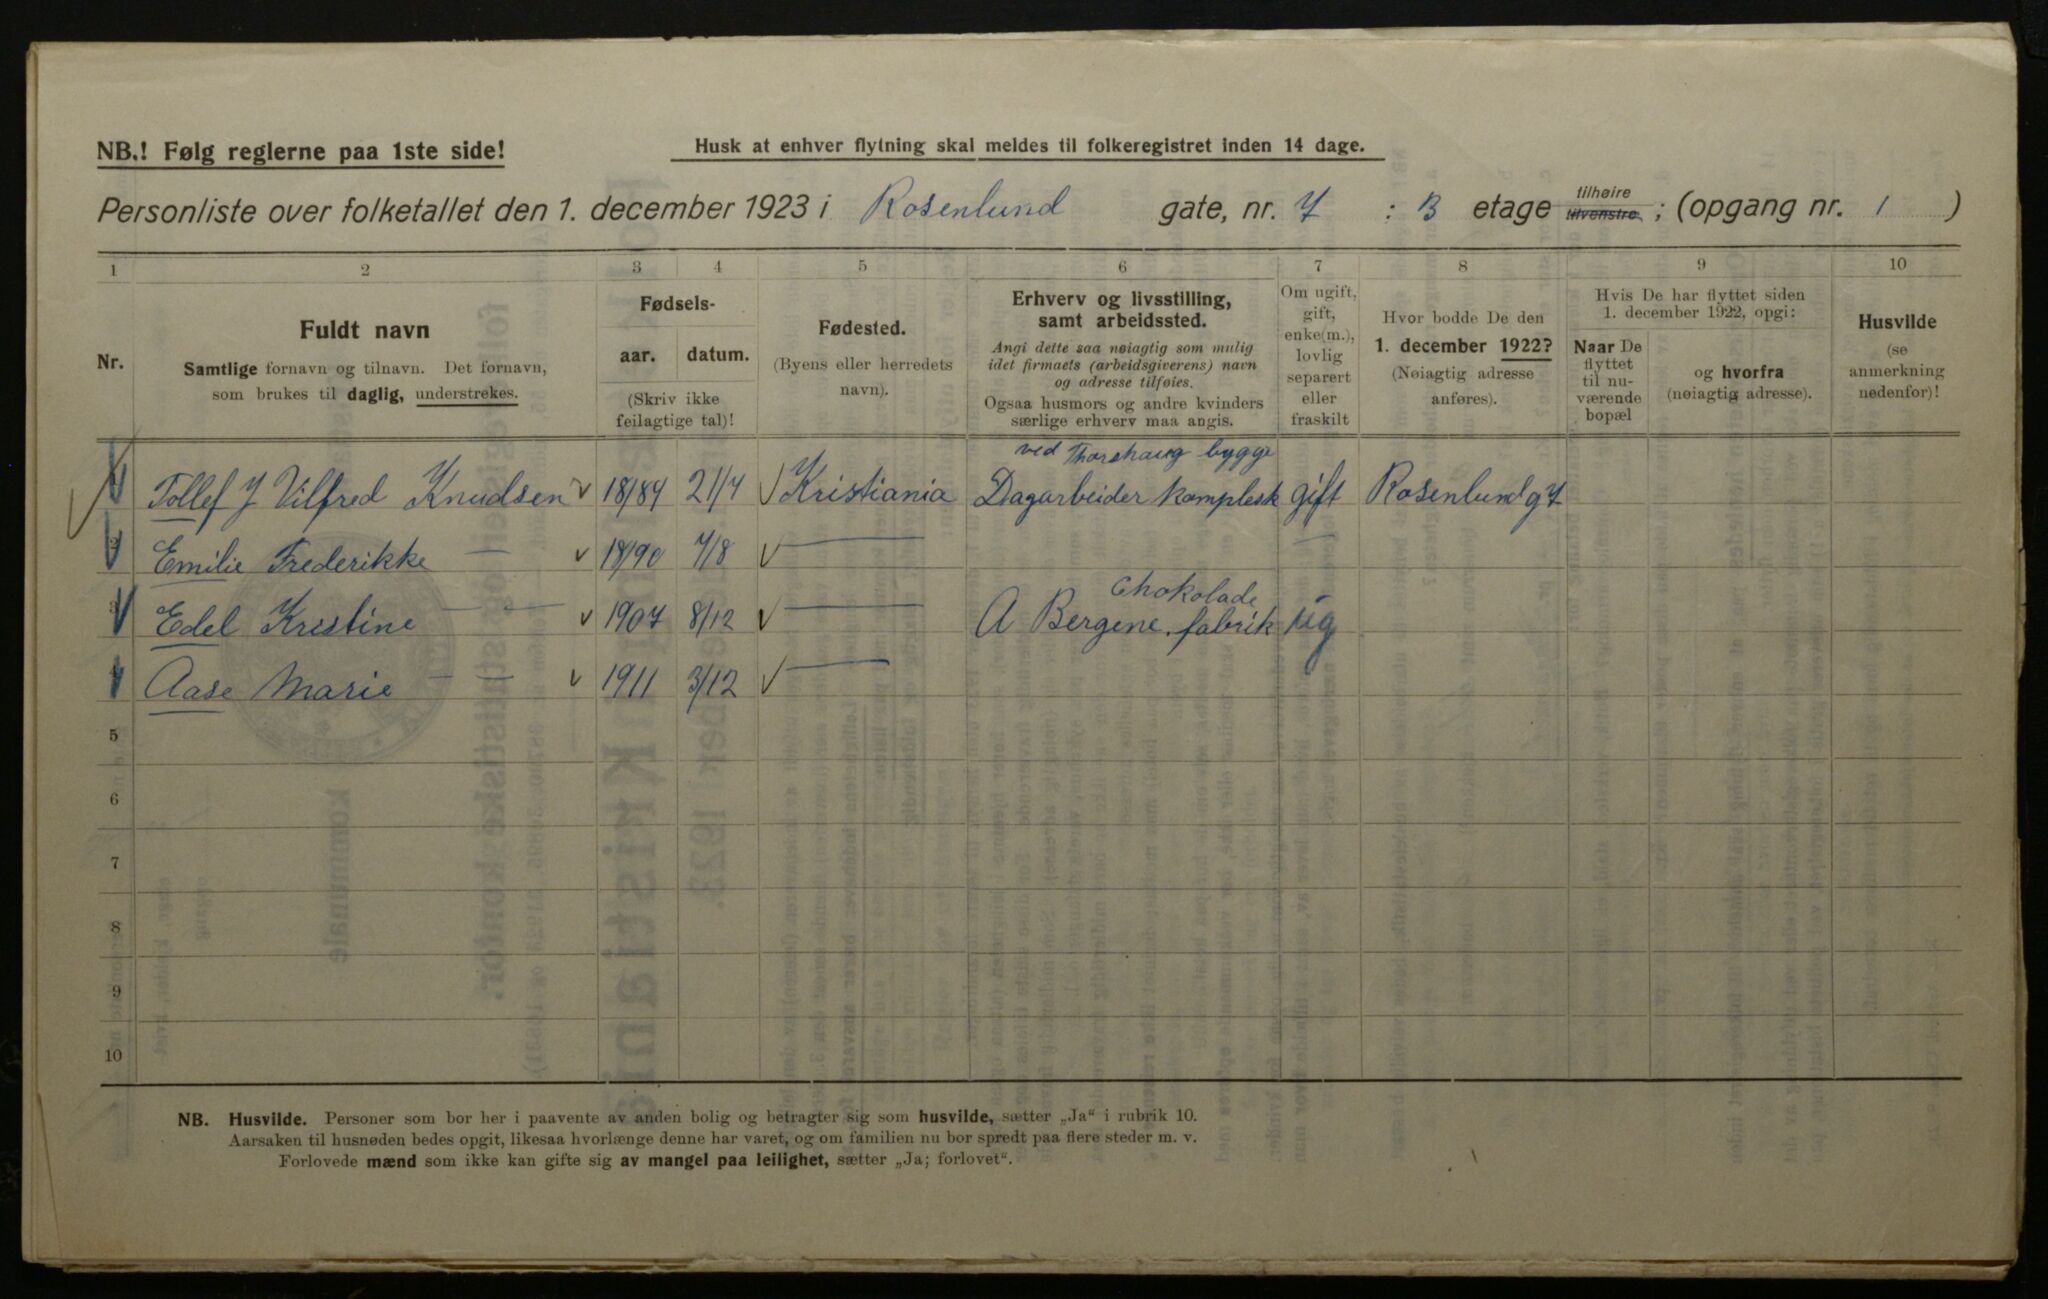 NB.! Følg reglerne paa 1ste side!
Husk at enhver flytning skal meldes til folkeregistret inden 14 dage.
Personliste over folketallet den 1. december 1923 i Rosenlund gate, nr. 7 : 3 etage tilhøire tilvenstre ; (opgang nr. 1 )
1 2 3 4 5 6 7 8 9 10
Nr.
Fuldt navn
Samtlige fornavn og tilnavn. Det fornavn,
som brukes til daglig, understrekes.
Fødsels-
aar. datum.
(Skriv ikke
feilagtige tal)!
Fødested.
(Byens eller herredets
navn).
Erhverv og livsstilling,
samt arbeidssted.
Angi dette saa nøiagtig som mulig
idet firmaets (arbeidsgiverens) navn
og adresse tilføies.
Ogsaa husmors og andre kvinders
særlige erhverv maa angis.
Om ugift,
gift,
enke(m.),
lovlig
separert
eller
fraskilt
Hvor bodde De den
1. december 1922?
(Nøiagtig adresse
anføres).
Hvis De har flyttet siden
1. december 1922, opgi:
Naar De
flyttet
til nu-
værende
bopæl
og hvorfra
(nøiagtig adresse).
Husvilde
(se
anmerkning
nedenfor)!
ved Thorshaug bygge
1 Tollef J Vilfred Knudsen 18/84 21/7 Kristiania Dagarbeider Kompleks gift Rosenlundgt
2 Emilie Frederikke — 18/90 7/8 — —
Chokolade
3 Edel Kristine — — 1907 8/12 — A Bergene fabrik ug
4 Aase Marie — — 1911 3/12 —
5
6
7
8
9
10
NB. Husvilde. Personer som bor her i paavente av anden bolig og betragter sig som husvilde, sætter „Ja“ i rubrik 10.
Aarsaken til husnøden bedes opgit, likesaa hvorlænge denne har varet, og om familien nu bor spredt paa flere steder m. v.
Forlovede mænd som ikke kan gifte sig av mangel paa leilighet, sætter „Ja; forlovet“.